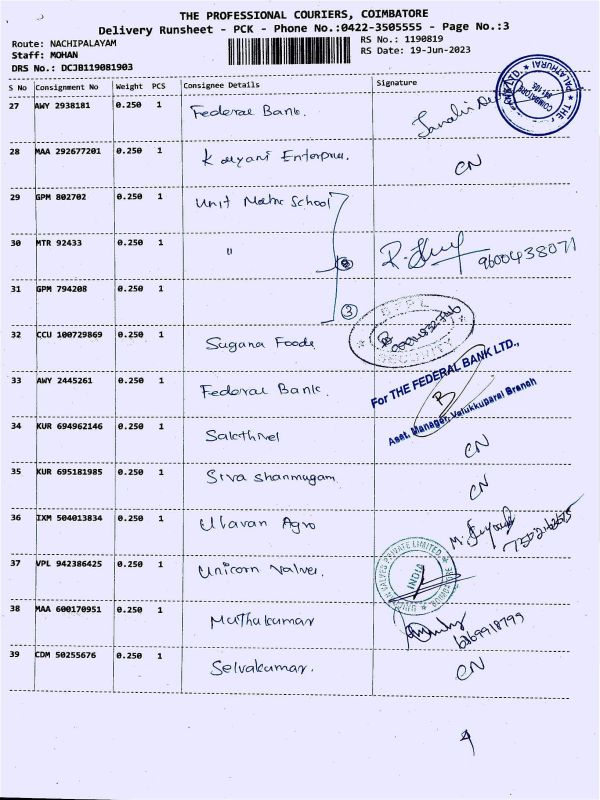 THE PROFESSIONAL COURIERS, COIMBATORE
Delivery Runsheet - PCK - Phone No.:0422-3505555 - Page No.:3
Route: NACHIPALAYAM
RS No.: 1190819
Staff: MOHAN
RS Date: 19-Jun-2023
DRS No.: DCJB119081903
S No Consignment No Weight PCS Consignee Details Signature
27 AWY 2938181 0.250 1 Federal Bank.
28 MAA 292677201 0.250 1 Kalyani CN
29 GPM 802702 0.250 1 Unit Matric School
30 MTR 92433 0.250 1 " 9600438071
31 GPM 794208 0.250 1 3
32 CCU 100729869 0.250 1 Suguna Foods
33 AWY 2445261 0.250 1 Federal Bank.
For THE FEDERAL BANK LTD.,
Asst. Manager, Velukkuparai Branch
34 KUR 694962146 0.250 1 Sakthivel CN
35 KUR 695181985 0.250 1 Siva Shanmugam CN
36 IXM 504013834 0.250 1 Ulavan Agro
37 VPL 942386425 0.250 1 Unicorn Valves.
UNICORN VALVES PRIVATE LIMITED
INDIA
38 MAA 600170951 0.250 1 Muthukumar
39 CDM 50255676 0.250 1 Selvakumar. CN